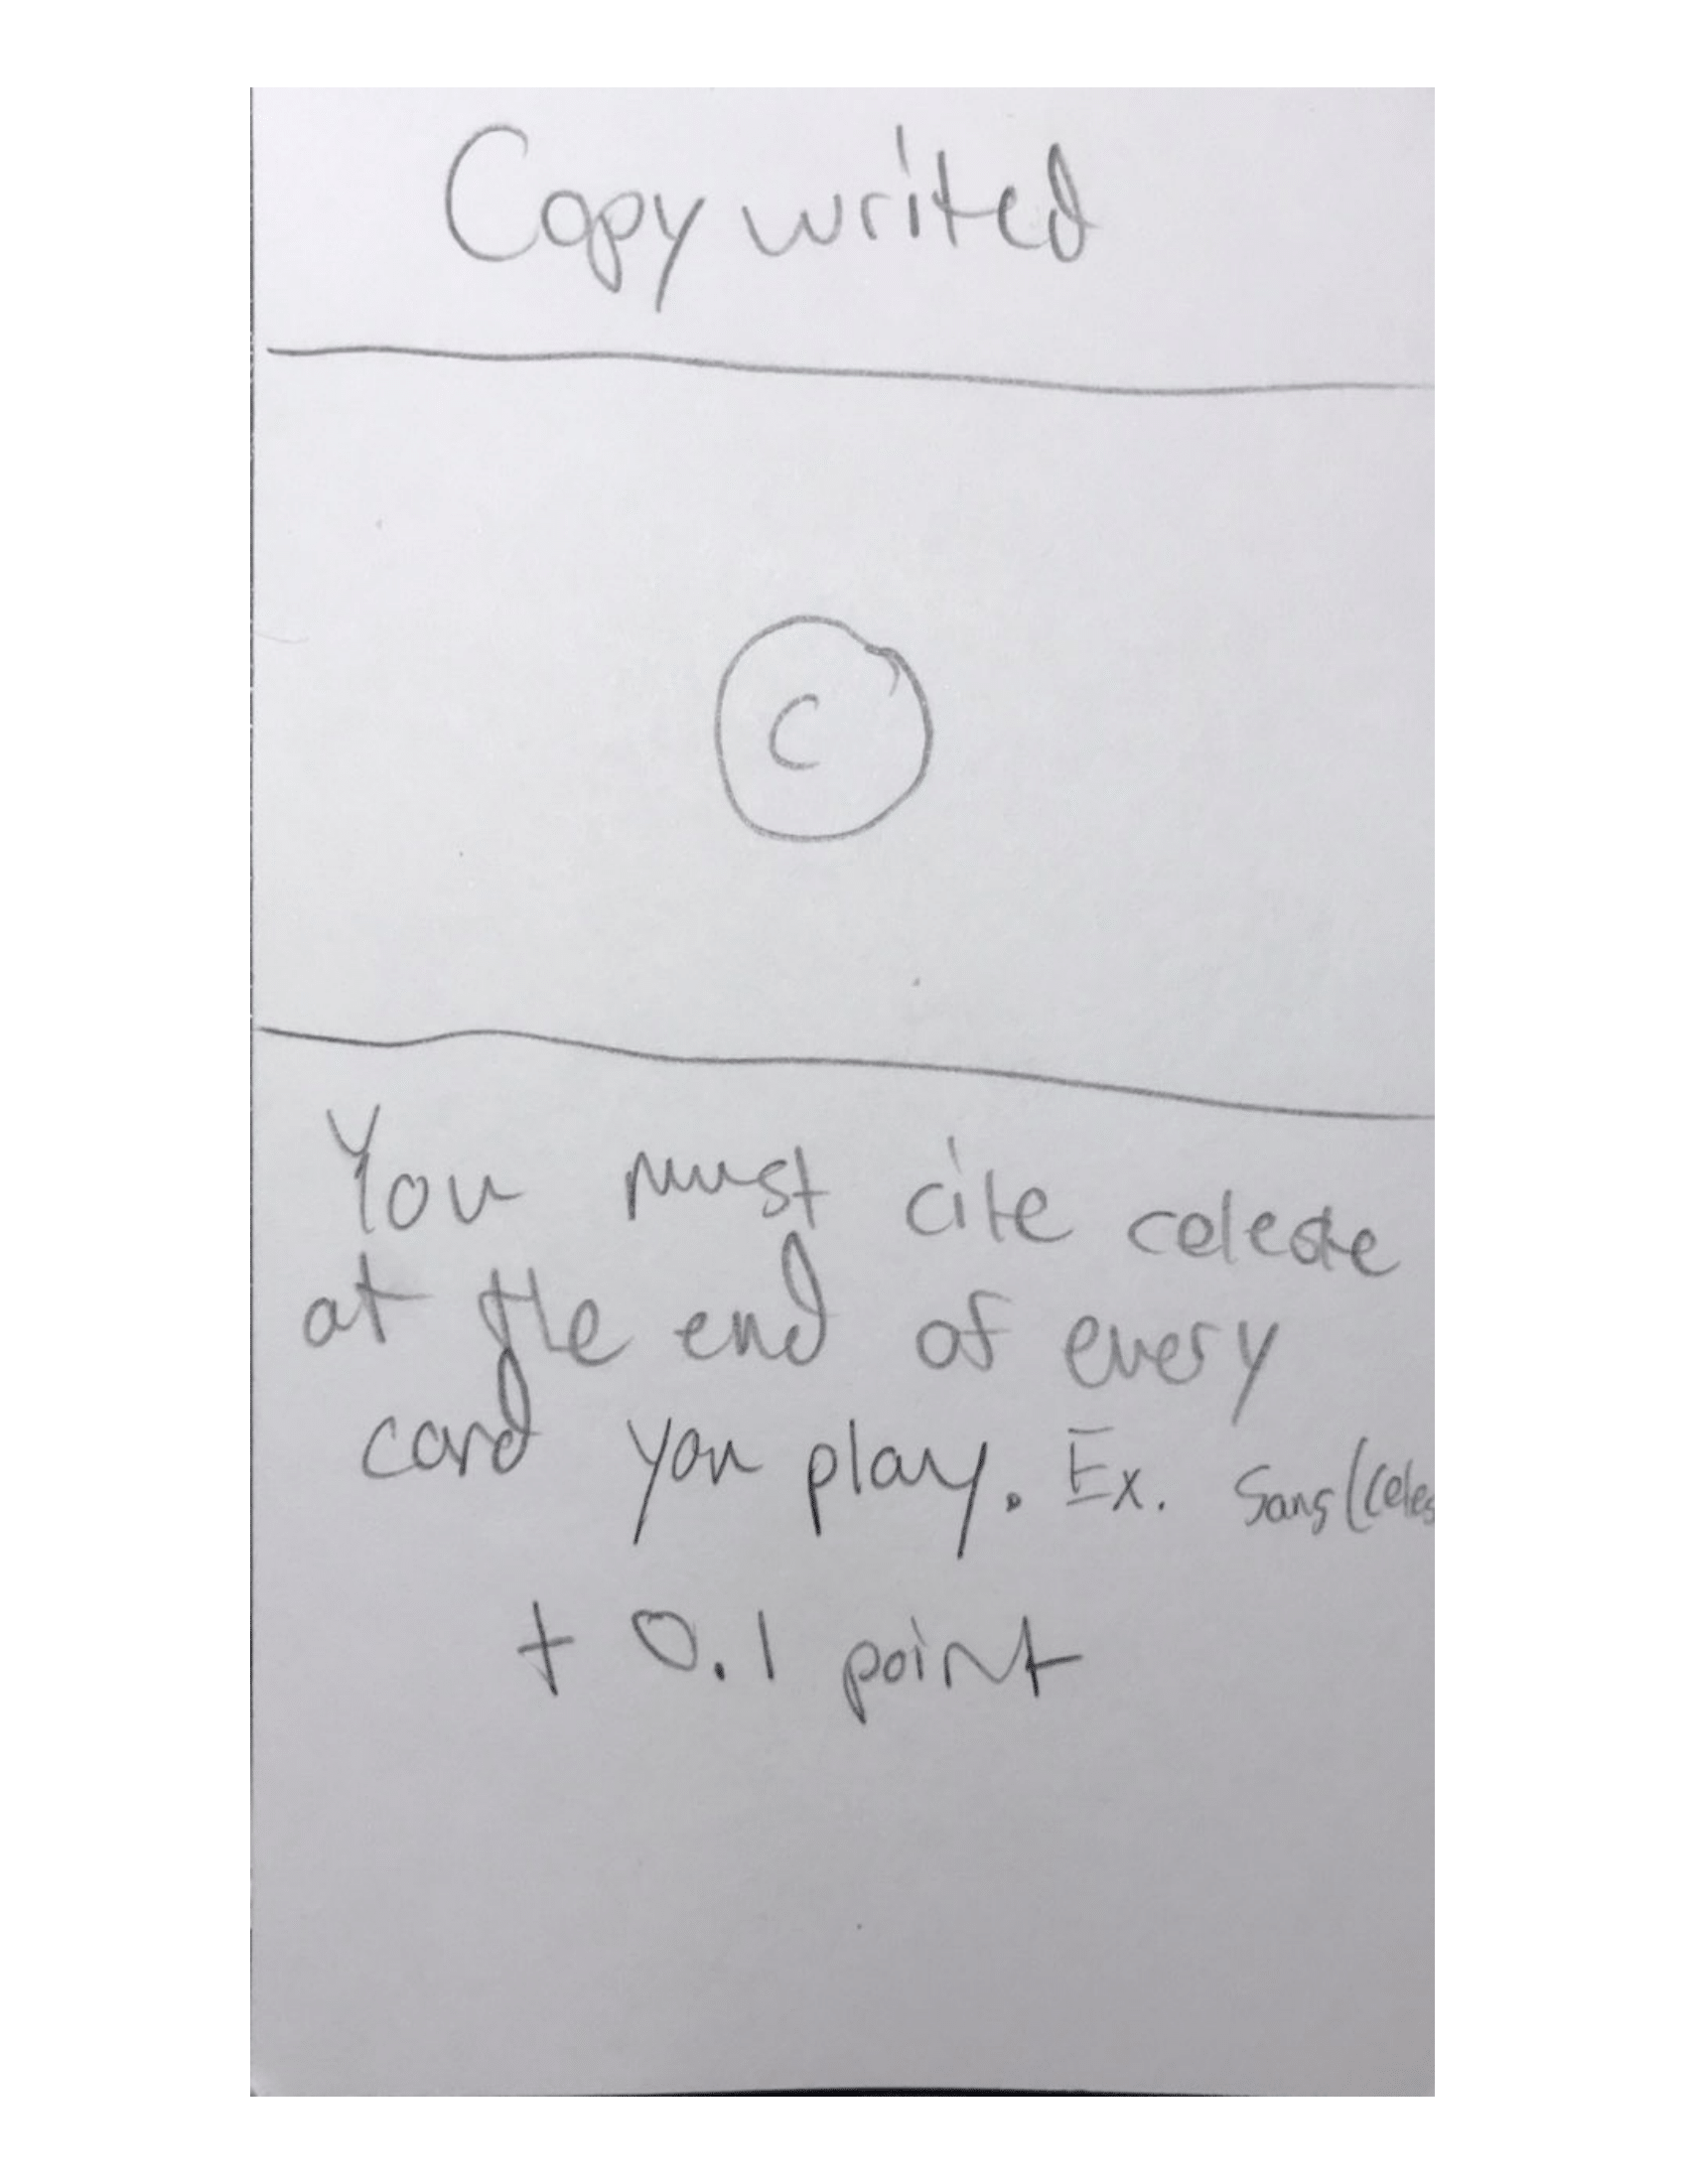 Copy writed
C
You must cite celeste
at the end of every
card you play. Ex. Sans (Celes
+ 0.1 point